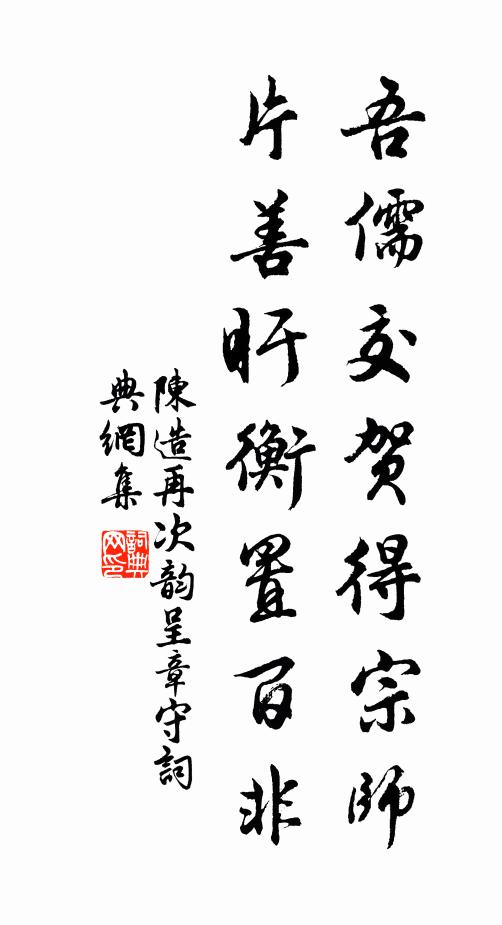 吾儒交贺得宗師
片善盱衡置百非
陳造再次韵呈章守詞
典網集
詞典网印